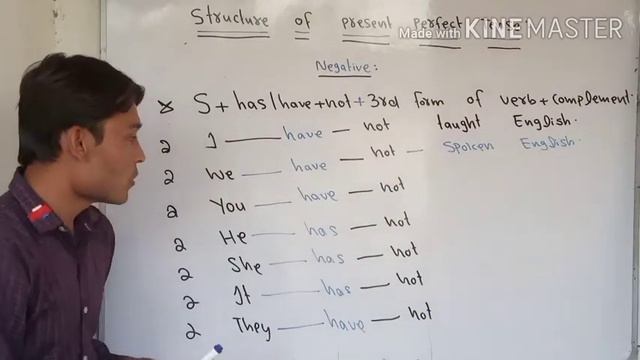 Structure of present perfect tense.
Made with KINEMASTER
Negative:
S + has/have + not + 3rd form of verb + complement.
I — have — not taught English.
We — have — not — Spoken English.
You — have — not
He — has — not
She — has — not
It — has — not
They — have — not